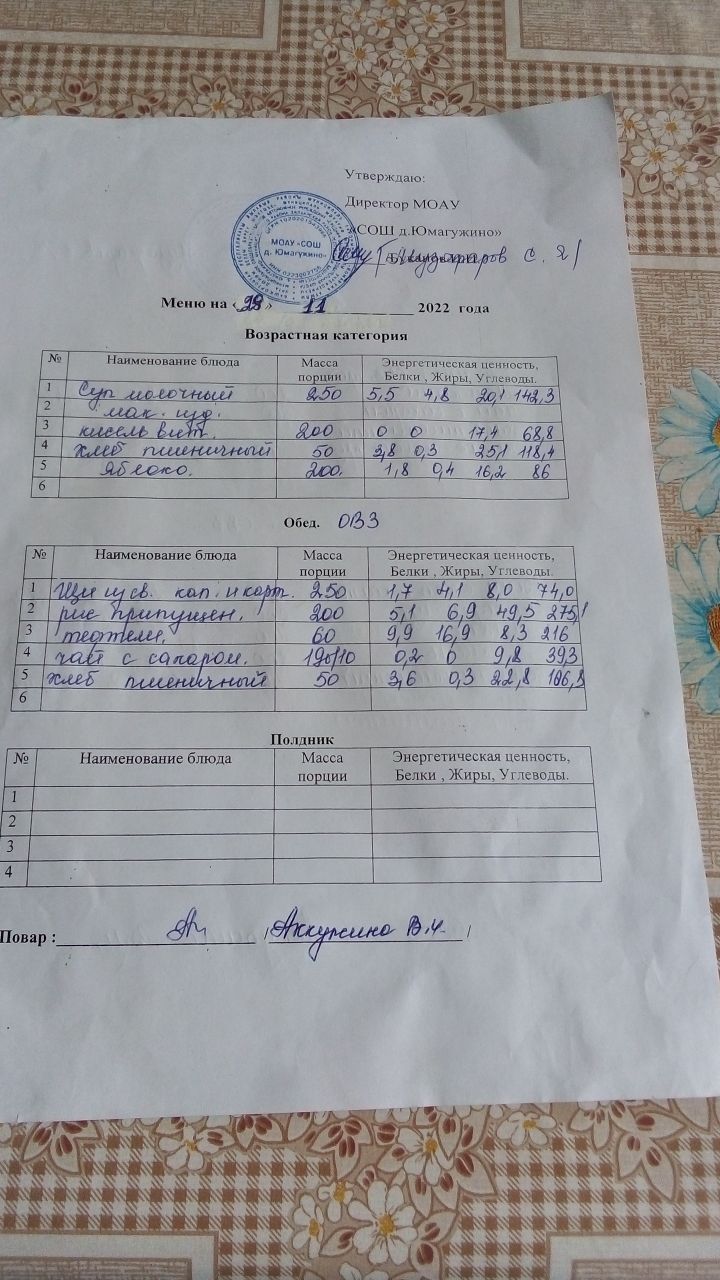 Утверждаю:
Директор МОАУ
«СОШ д.Юмагужино»
С. Я/
МОАУ «СОШ
д. Юмагужино»
Меню на «28» 11 2022 года
Возрастная категория
№ Наименование блюда Масса порции Энергетическая ценность, Белки , Жиры, Углеводы.
1 Суп молочный 250 5,5 4,8 20,1 142,3
2 мак. изд.
3 кисель вит. 200 0 0 17,4 68,8
4 хлеб пшеничный 50 3,8 0,3 25,1 118,4
5 Яблоко. 200. 1,8 0,4 16,2 86
6
Обед. ОВЗ
№ Наименование блюда Масса порции Энергетическая ценность, Белки , Жиры, Углеводы.
1 Щи из св. кап. и карт. 250 1,7 4,1 8,0 74,0
2 рис припущен. 200 5,1 6,9 49,5 275,1
3 тефтели. 60 9,9 16,9 8,3 216
4 чай с сахаром. 190/10 0,2 0 9,8 393
5 хлеб пшеничный 50 3,6 0,3 22,8
6
Полдник
№ Наименование блюда Масса порции Энергетическая ценность, Белки , Жиры, Углеводы.
1
2
3
4
Повар : /Аккужина В.Ч. /